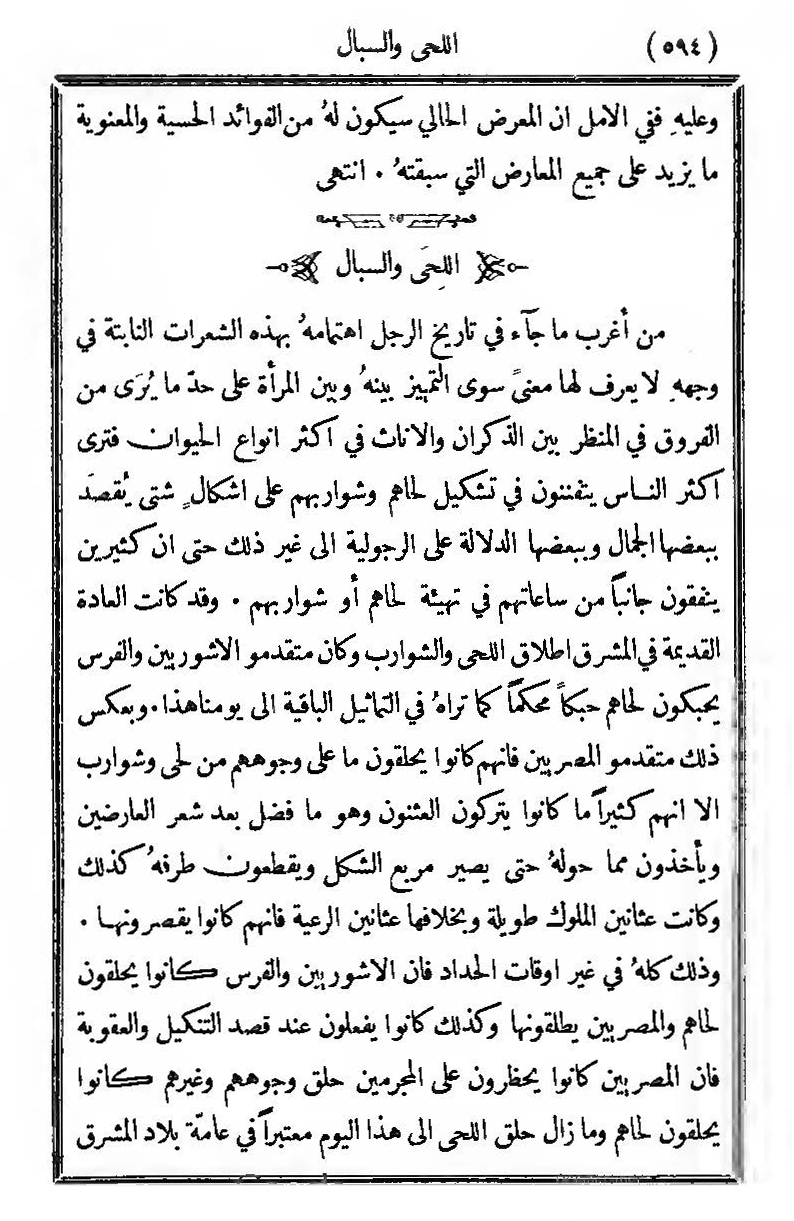 (٥٩٤) اللحى والسبال
وعليهِ ففي الامل ان المعرض الحالي سيكون لهُ من الفوائد الحسية والمعنوية
ما يزيد على جميع المعارض التي سبقتهُ . انتهى
اللِحَى والسبال
من أغرب ما جآء في تاريخ الرجل اهتمامهُ بهذه الشعرات النابتة في
وجههِ لا يعرف لها معنىً سوى التمييز بينهُ وبين المرأة على حدّ ما يُرَى من
الفروق في المنظر بين الذكران والاناث في اكثر انواع الحيوان فترى
اكثر الناس يتفننون في تشكيل لحاهم وشواربهم على اشكالٍ شتى يُقصَد
ببعضها الجمال وببعضها الدلالة على الرجولية الى غير ذلك حتى ان كثيرين
ينفقون جانباً من ساعاتهم في تهيئة لحاهم أو شواربهم . وقد كانت العادة
القديمة في المشرق اطلاق اللحى والشوارب وكان متقدمو الاشوريين والفرس
يحبكون لحاهم حبكاً محكماً كما تراهُ في التماثيل الباقية الى يومنا هذا . وبعكس
ذلك متقدمو المصريين فانهم كانوا يحلقون ما على وجوههم من لحى وشوارب
الا انهم كثيراً ما كانوا يتركون العثنون وهو ما فضل بعد شعر العارضين
ويأخذون مما حولهُ حتى يصير مربع الشكل ويقطعون طرفهُ كذلك
وكانت عثانين الملوك طويلة وبخلافها عثانين الرعية فانهم كانوا يقصرونها .
وذلك كلهُ في غير اوقات الحداد فان الاشوريين والفرس كانوا يحلقون
لحاهم والمصريين يطلقونها وكذلك كانوا يفعلون عند قصد التنكيل والعقوبة
فان المصريين كانوا يحظرون على المجرمين حلق وجوههم وغيرهم كانوا
يحلقون لحاهم وما زال حلق اللحى الى هذا اليوم معتبراً في عامّة بلاد المشرق